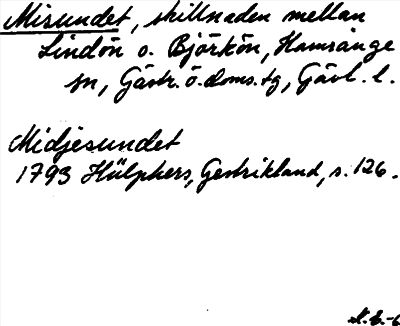 Misundet, skillnaden mellan
Lindön o. Björkön, Hamrånge
sn, Gästr. ö. doms. tg, Gävl. l.
Midjesundet
1793 Hülphers, Gestrikland, s. 126.